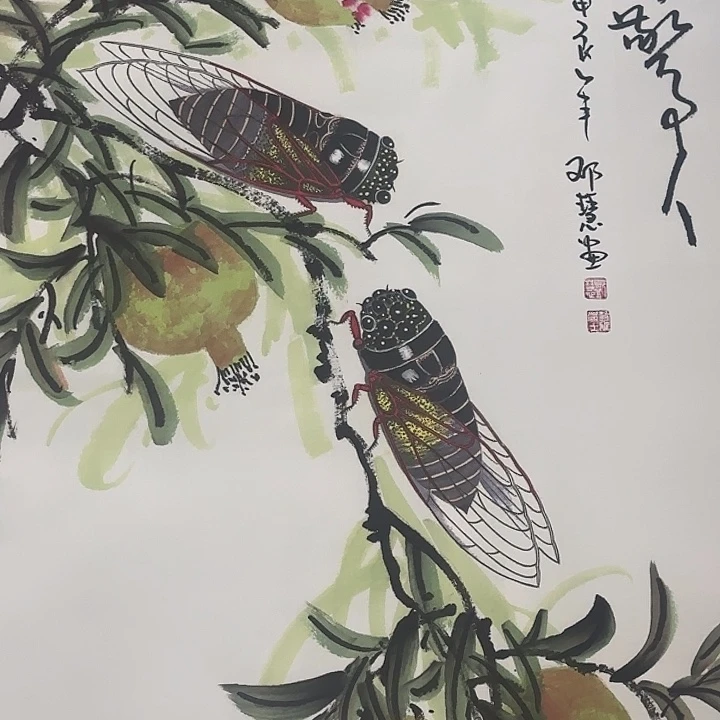 驚人
甲辰年 邓慧画